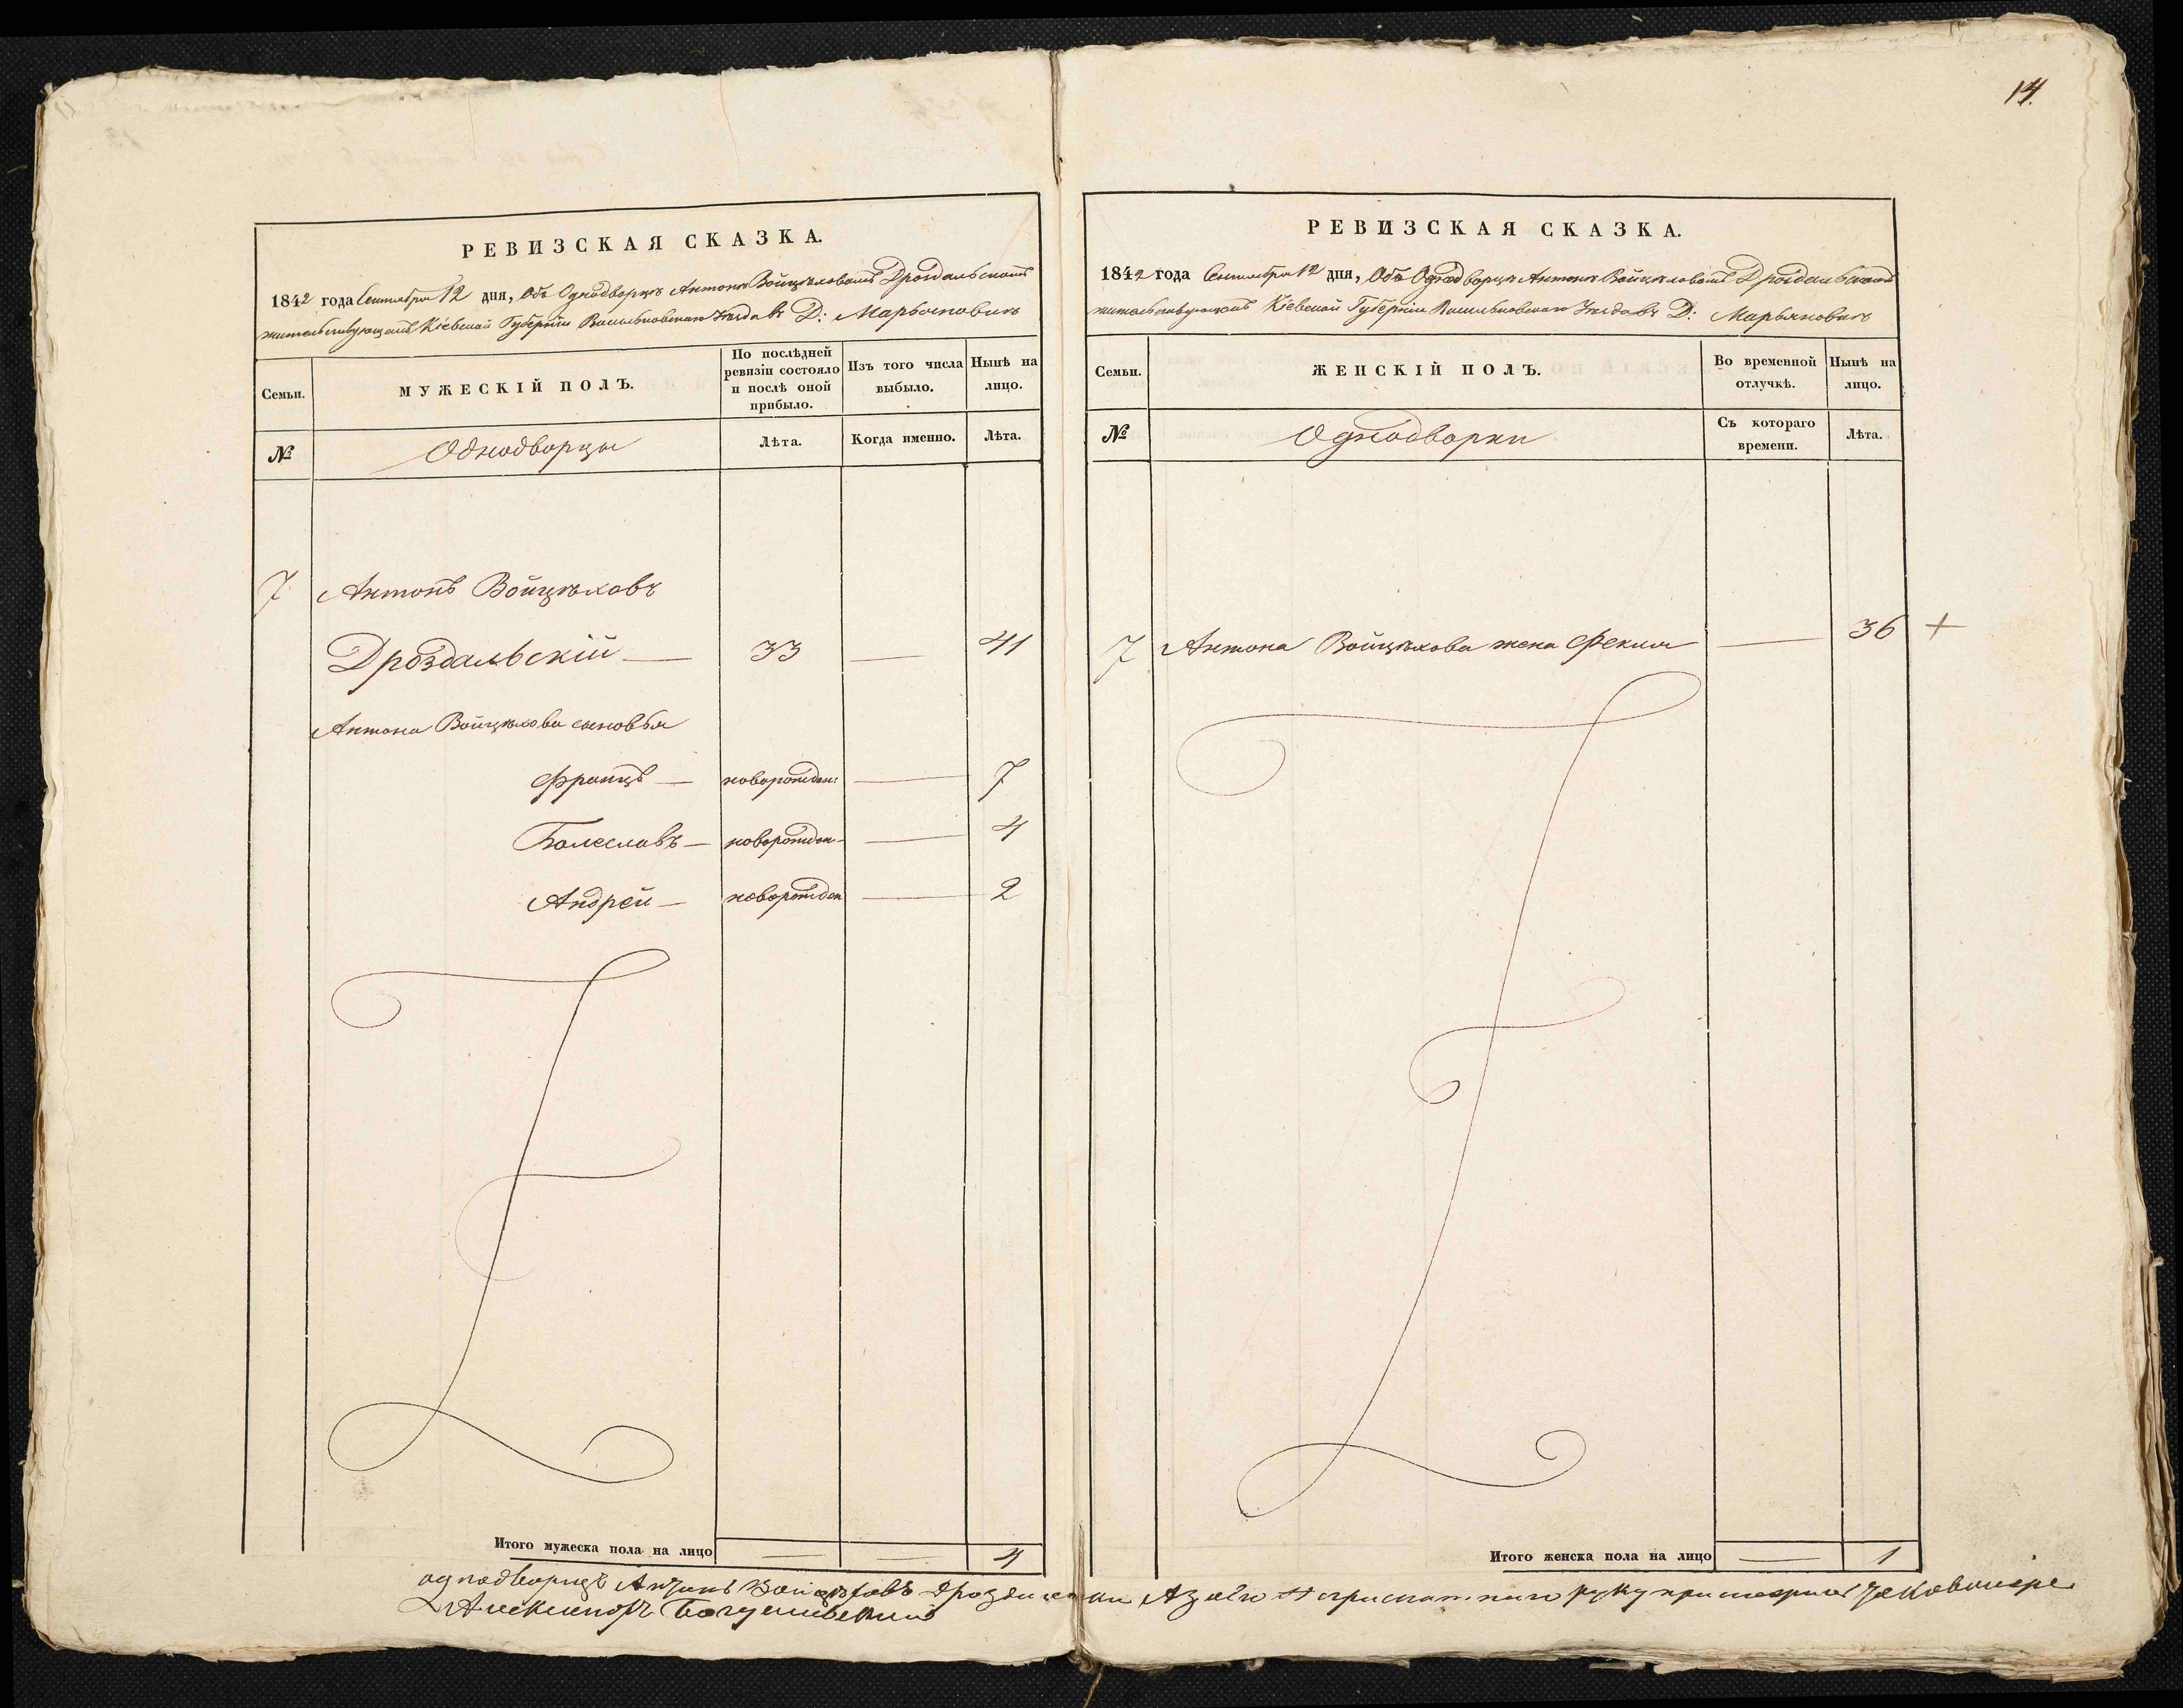 14.
РЕВИЗСКАЯ СКАЗКА.
1842 года Сентября 12 дня, Объ Однодворцѣ Антонѣ Войцѣховомъ Дроздальскомъ
жительствующемъ Кіевской Губерніи Васильковскаго Уѣзда въ Д: Марьяновкѣ
Семьи.
МУЖЕСКІЙ ПОЛЪ.
По послѣдней ревизіи состояло и послѣ оной прибыло.
Изъ того числа выбыло.
Нынѣ на лицо.
№
Однодворцы
Лѣта.
Когда именно.
Лѣта.
7 Антонъ Войцѣховъ
Дроздальскій — 33 — 41
Антона Войцѣхова сыновья
Францъ — новорожден: — 7
Болеславъ — новорожден — 4
Андрей — новорожден — 2
Итого мужеска пола на лицо — — 4
РЕВИЗСКАЯ СКАЗКА.
1842 года Сентября 12 дня, Объ Однодворцѣ Антонѣ Войцѣховомъ Дроздальскомъ
жительствующемъ Кіевской Губерніи Васильковскаго Уѣзда въ Д: Марьяновкѣ
Семьи.
ЖЕНСКІЙ ПОЛЪ.
Во временной отлучкѣ.
Нынѣ на лицо.
№
Однодворки
Съ котораго времени.
Лѣта.
7 Антона Войцѣхова жена Фекла — 36 +
Итого женска пола на лицо — 1
однодворецъ Антонъ Войцѣховъ руку
Александръ